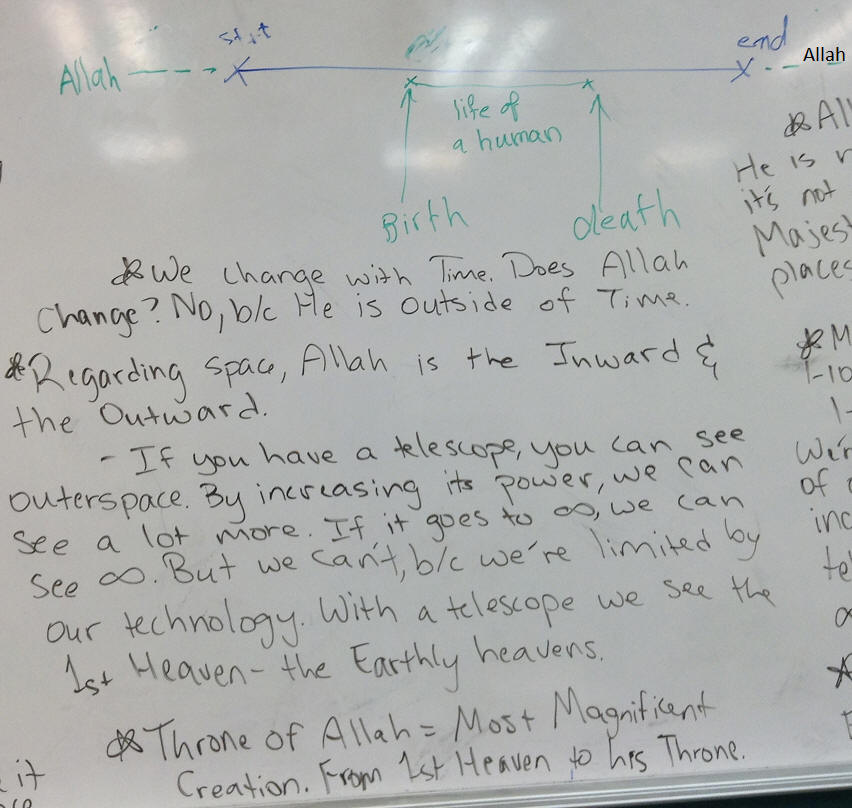 start
end
Allah
Allah
life of
a human
Birth
death
We change with Time. Does Allah
Change? No, b/c He is outside of Time.
Regarding space, Allah is the Inward &
the Outward.
- If you have a telescope, you can see
outerspace. By increasing its power, we can
see a lot more. If it goes to ∞, we can
see ∞. But we can't, b/c we're limited by
our technology. With a telescope we see the
1st Heaven - the Earthly heavens.
Throne of Allah = Most Magnificent
Creation. From 1st Heaven to his Throne.
He is
it's not
places
1-10
of
it